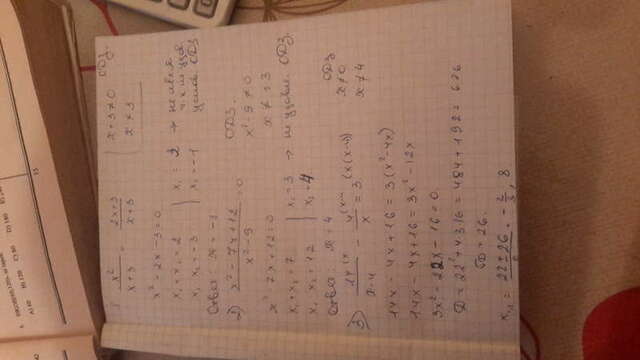 x² / x+3 = 2x+3 / x+3 | x+3≠0 ОДЗ.
x² - 2x - 3 = 0 | x ≠ 3
x₁ + x₂ = 2 } x₁ = 3
x₁ x₂ = -3 } x₂ = -1
Ответ: x = -1
2) x² - 7x + 12 / x² - 9 = 0 ОДЗ.
x² - 9 ≠ 0
x ≠ ±3
x² - 7x + 12 = 0
x₁ + x₂ = 7 } x₁ = 3 → не удовл. ОДЗ.
x₁ x₂ = 12 } x₂ = 4
Ответ: x = 4
3) 14 / x-4 - 4 / x = 3 ОДЗ
x ≠ 0
x ≠ 4
14x - 4x + 16 = 3(x² - 4x)
14x - 4x + 16 = 3x² - 12x
3x² - 22x - 16 = 0
D = 22² + 4·3·16 = 484 + 192 = 676
√D = 26
x₁,₂ = 22 ± 26 / 6 = - 2/3 , 8